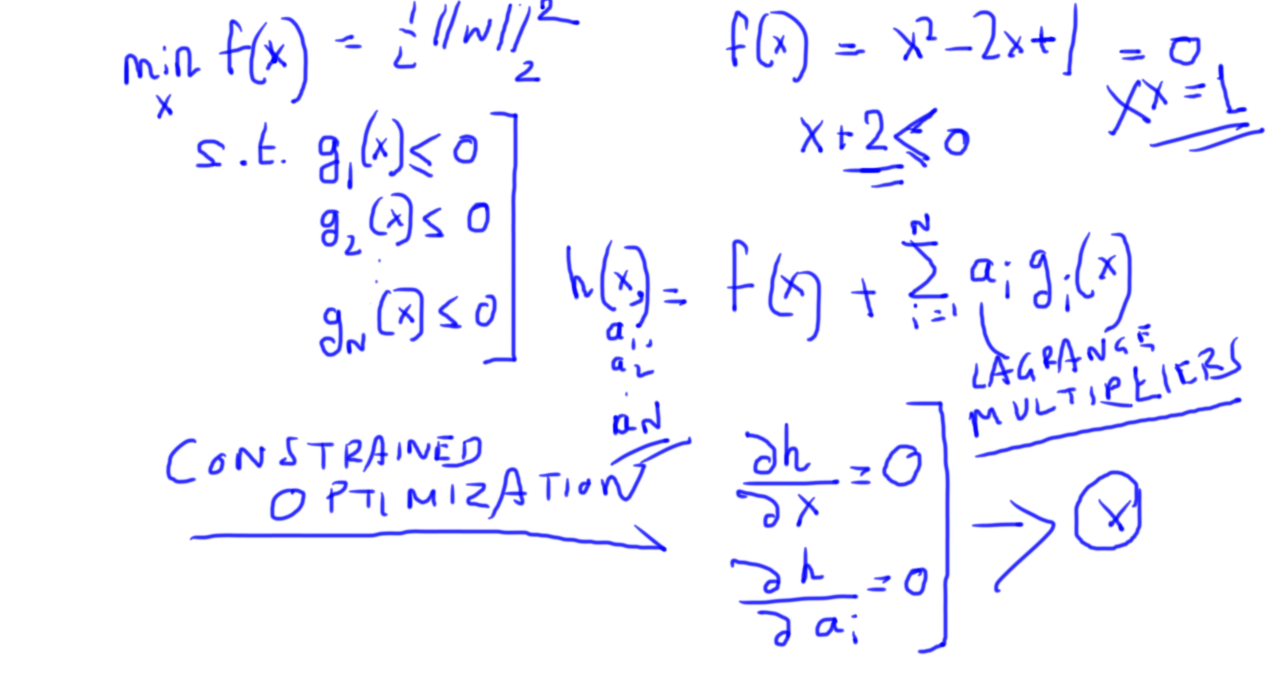 min f(x) = ½ ||w||₂²
x
s.t. g₁(x) ≤ 0
g₂(x) ≤ 0
⋮
g_N(x) ≤ 0
f(x) = x² - 2x + 1 = 0
x = 1
x + 2 ≤ 0
h(x, a₁, a₂ ⋮ a_N) = f(x) + ∑_{i=1}^{N} a_i g_i(x)
LAGRANGE
MULTIPLIERS
CONSTRAINED
OPTIMIZATION
∂h/∂x = 0
∂h/∂a_i = 0
→ x